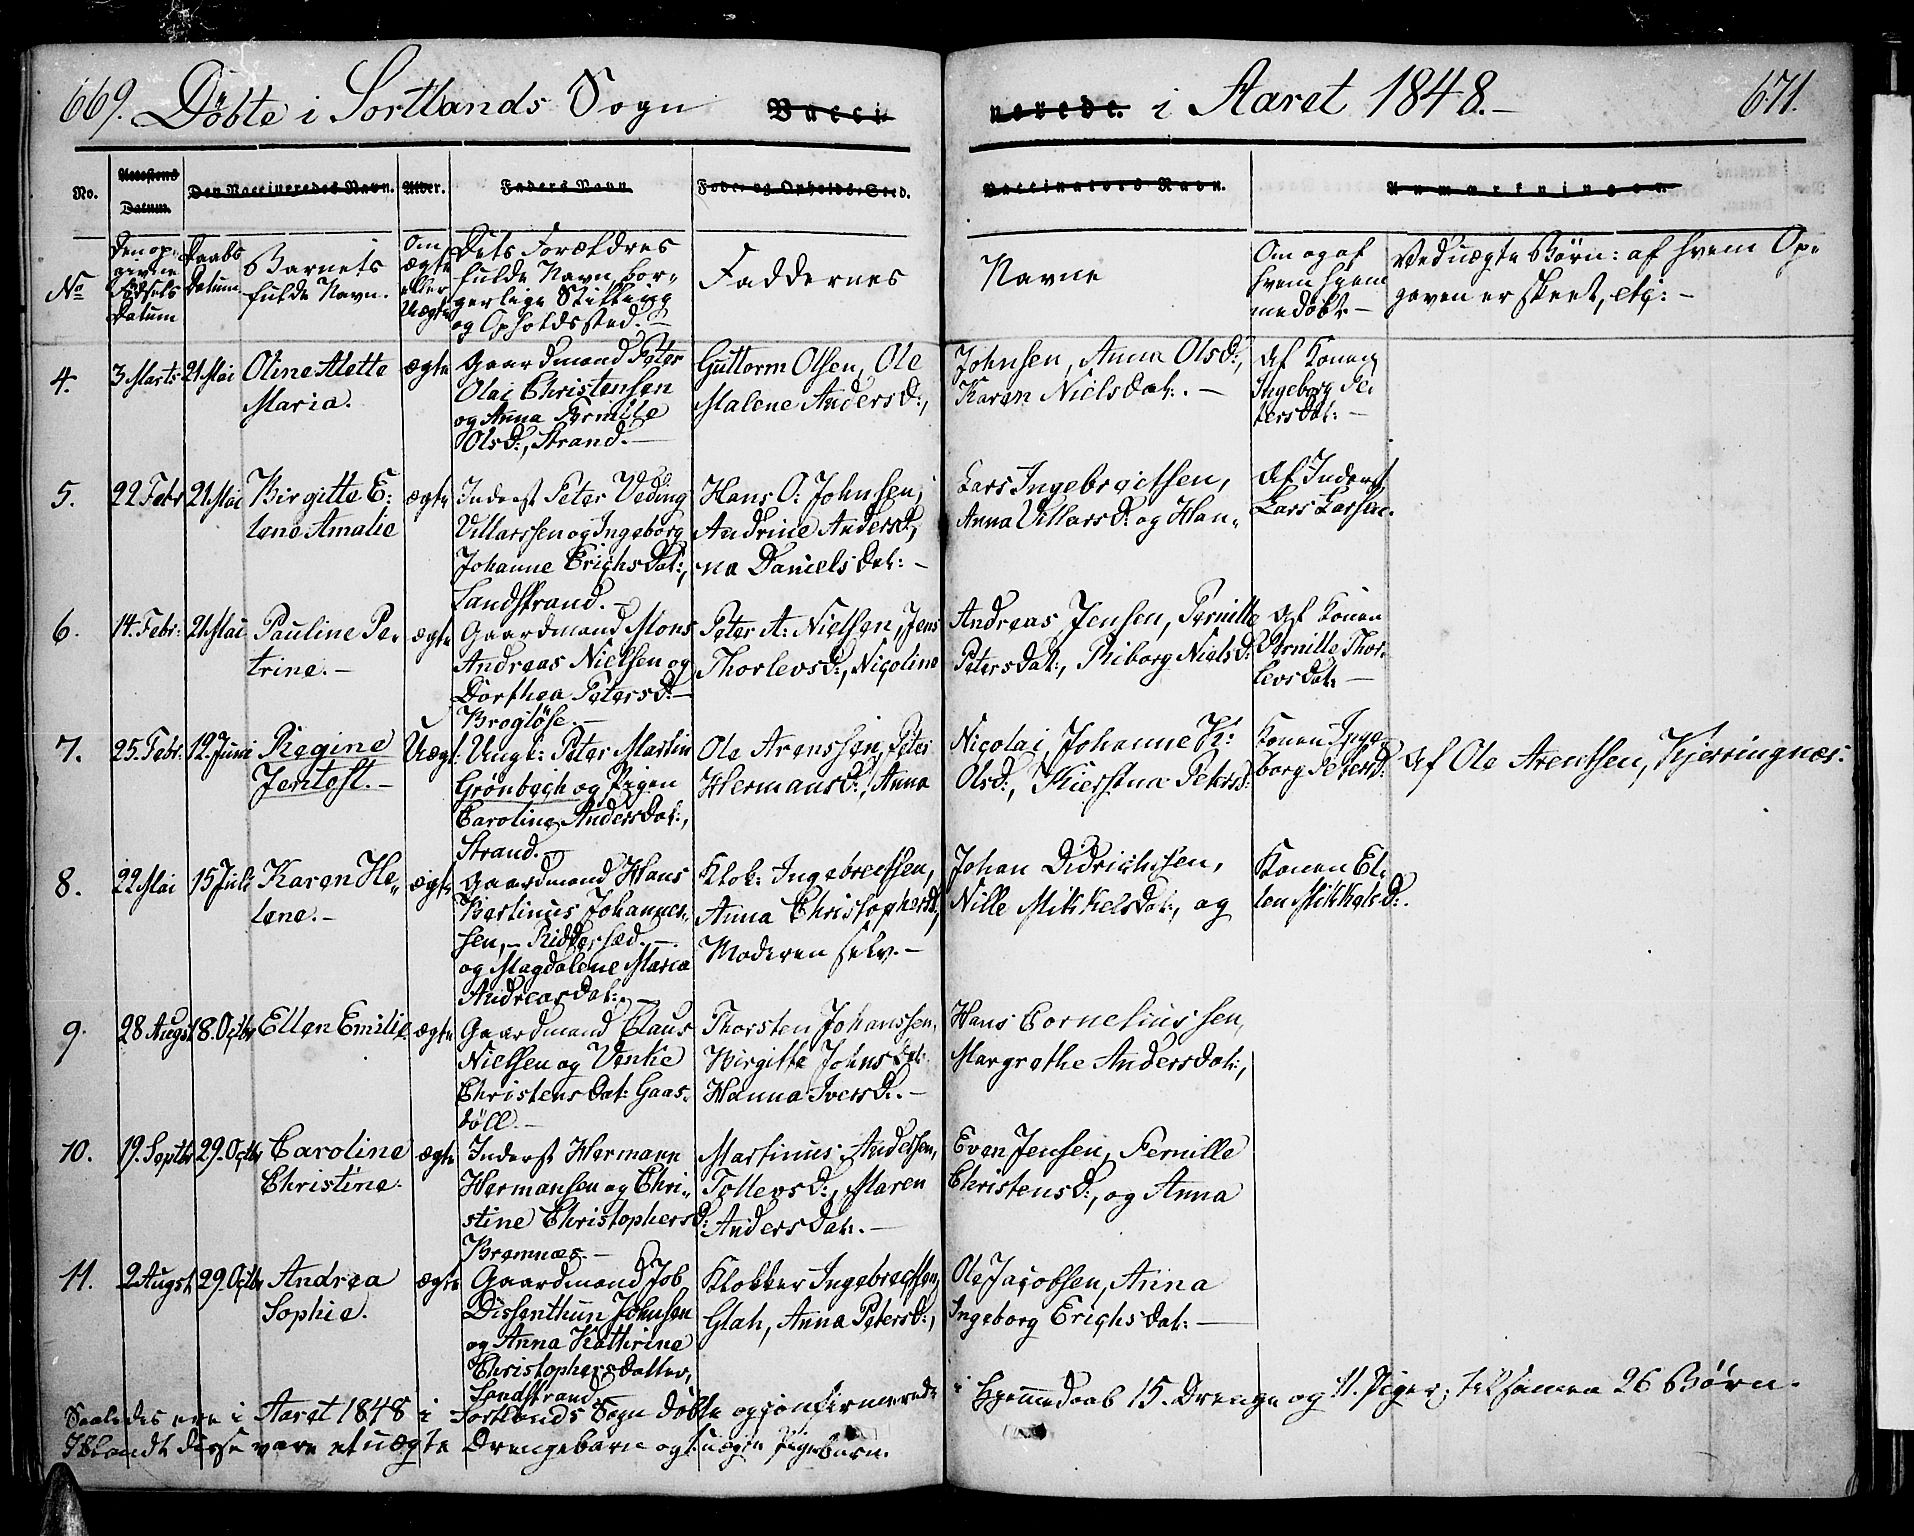 669. Döbte i Sortlands Sogn Vacci-
nerede. i Aaret 1848.- 671.
No. Attestens Datum. Den Vaccineredes Navn. Alder. Faders Navn. Føde- og Opholds-Sted. Vaccinateurs Navn. Anmærkninger.
No
Den op-
givne
Födsels
Datum
Daabs
Datum.
Barnets
fulde Navn.
Om
ægte
eller
Uægte
Dets Forældres
fulde Navn, bor-
gerlige Stilling
og Opholdssted.-
Faddernes
Navne
Om og af
hvem hjem-
medöbt.-
Ved uægte Börn: af hvem Op-
gaven er skeet, etc:-
4. 3 Marts 21 Mai
Oline Alette
Maria.
ægte
Gaardmand Peter
Olai Christensen
og Anna Pernille
Olsd:, Strand.-
Guttorm Olsen, Ole
Malene Andersd:,
Johnsen, Anna Olsd:,
Karen Nielsdat:.-
Af Konen
Ingeborg Pe-
tersdat:-
5. 22 Febr 21 Mai
Birgitte E-
lene Amalie
ægte
Inderst Peter Veding
Villarssen og Ingeborg
Johanne Erichsdat:,
Sandstrand.-
Hans O: Johnsen,
Andrine Andersd:,
na Danielsdat:-
Lars Ingebrigtsen,
Anna Villarsd: og Han-
Af Inderst
Lars Larsen.
6. 14. Febr: 21 Mai
Pauline Pe-
trine.-
ægte
Gaardmand Mons
Andreas Nielsen og
Dorthea Petersd:-
Broglöse.-
Peter A: Nielsen, Jens
Thorlevsd:, Nicoline
Andreas Jensen, Pernille
Petersdat:, Riborg Nielsd:
Af Konen
Pernille Thor-
levsdat:-
7. 25. Febr: 12. Juni
Regine
Jentoft.-
Uægt:
Ungk: Peter Martin
Grönbech og Pigen
Caroline Andersdat:,
Strand.-
Ole Arenssen, Peter
Hermansd:, Anna
Nicolai, Johanne K:
Olsd:, Kierstina Petersd:
Konen Inge-
borg Petersd:
Af Ole Arentsen, Kjerringnæs.
8. 22 Mai 15 Juli
Karen He-
lene.-
ægte
Gaardmand Hans
Bertinus Johannes-
sen,- Riddersæd.-
og Magdalene Maria
Andreasdat:.-
Klok: Ingebretssen,
Anna Christophersd:,
Moderen selv.-
Johan Didrichsen,
Nille Mikkelsdat:, og
Konen El-
len Mikkelsd:.
9. 28 Augst 8. Octbr
Ellen Emilie
ægte
Gaardmand Claus
Nielsen og Venke
Christensdat: Gaas-
föll.-
Thorsten Johanssen,
Birgitte Johnsdat:
Hanna Iversd:.-
Hans Corneliussen,
Margrethe Andersdat:,
10. 19. Septbr 29. Octbr
Caroline
Christine.
ægte
Inderst Hermann
Hermansen og Chri-
stine Christophersd:
Bremnæs.-
Martinus Andersen,
Tollevsd:, Maren
Andersdat:.-
Even Jensen, Pernille
Christensd:, og Anna
11. 2 Augst 29. Octbr
Andrea
Sophie.
ægte
Gaardmand Job
Dissenthun Johnsen
og Anna Kathrine
Christophersdatter,
Sandstrand.
Klokker Ingebretssen,
Glah, Anna Petersd:,
Ole Jacobsen, Anna
Ingeborg Erichsdat:-
Saaledes ere i Aaret 1848 i Sortlands Sogn döbte og confirmerede i Hjemmedaab 15. Drenge og 11. Piger; tilsamen 26 Börn.
Iblandt disse vare et uægte Drengebarn og 1 uægte Pigebarn.